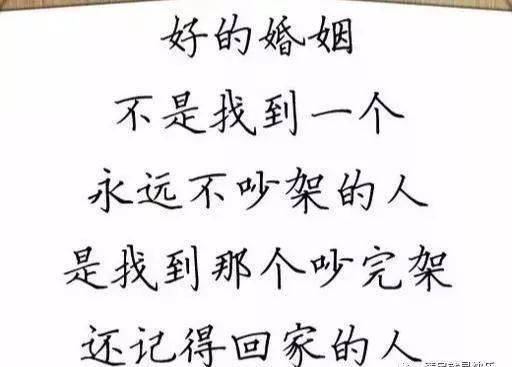 好的婚姻
不是找到一个
永远不吵架的人
是找到那个吵完架
还记得回家的人